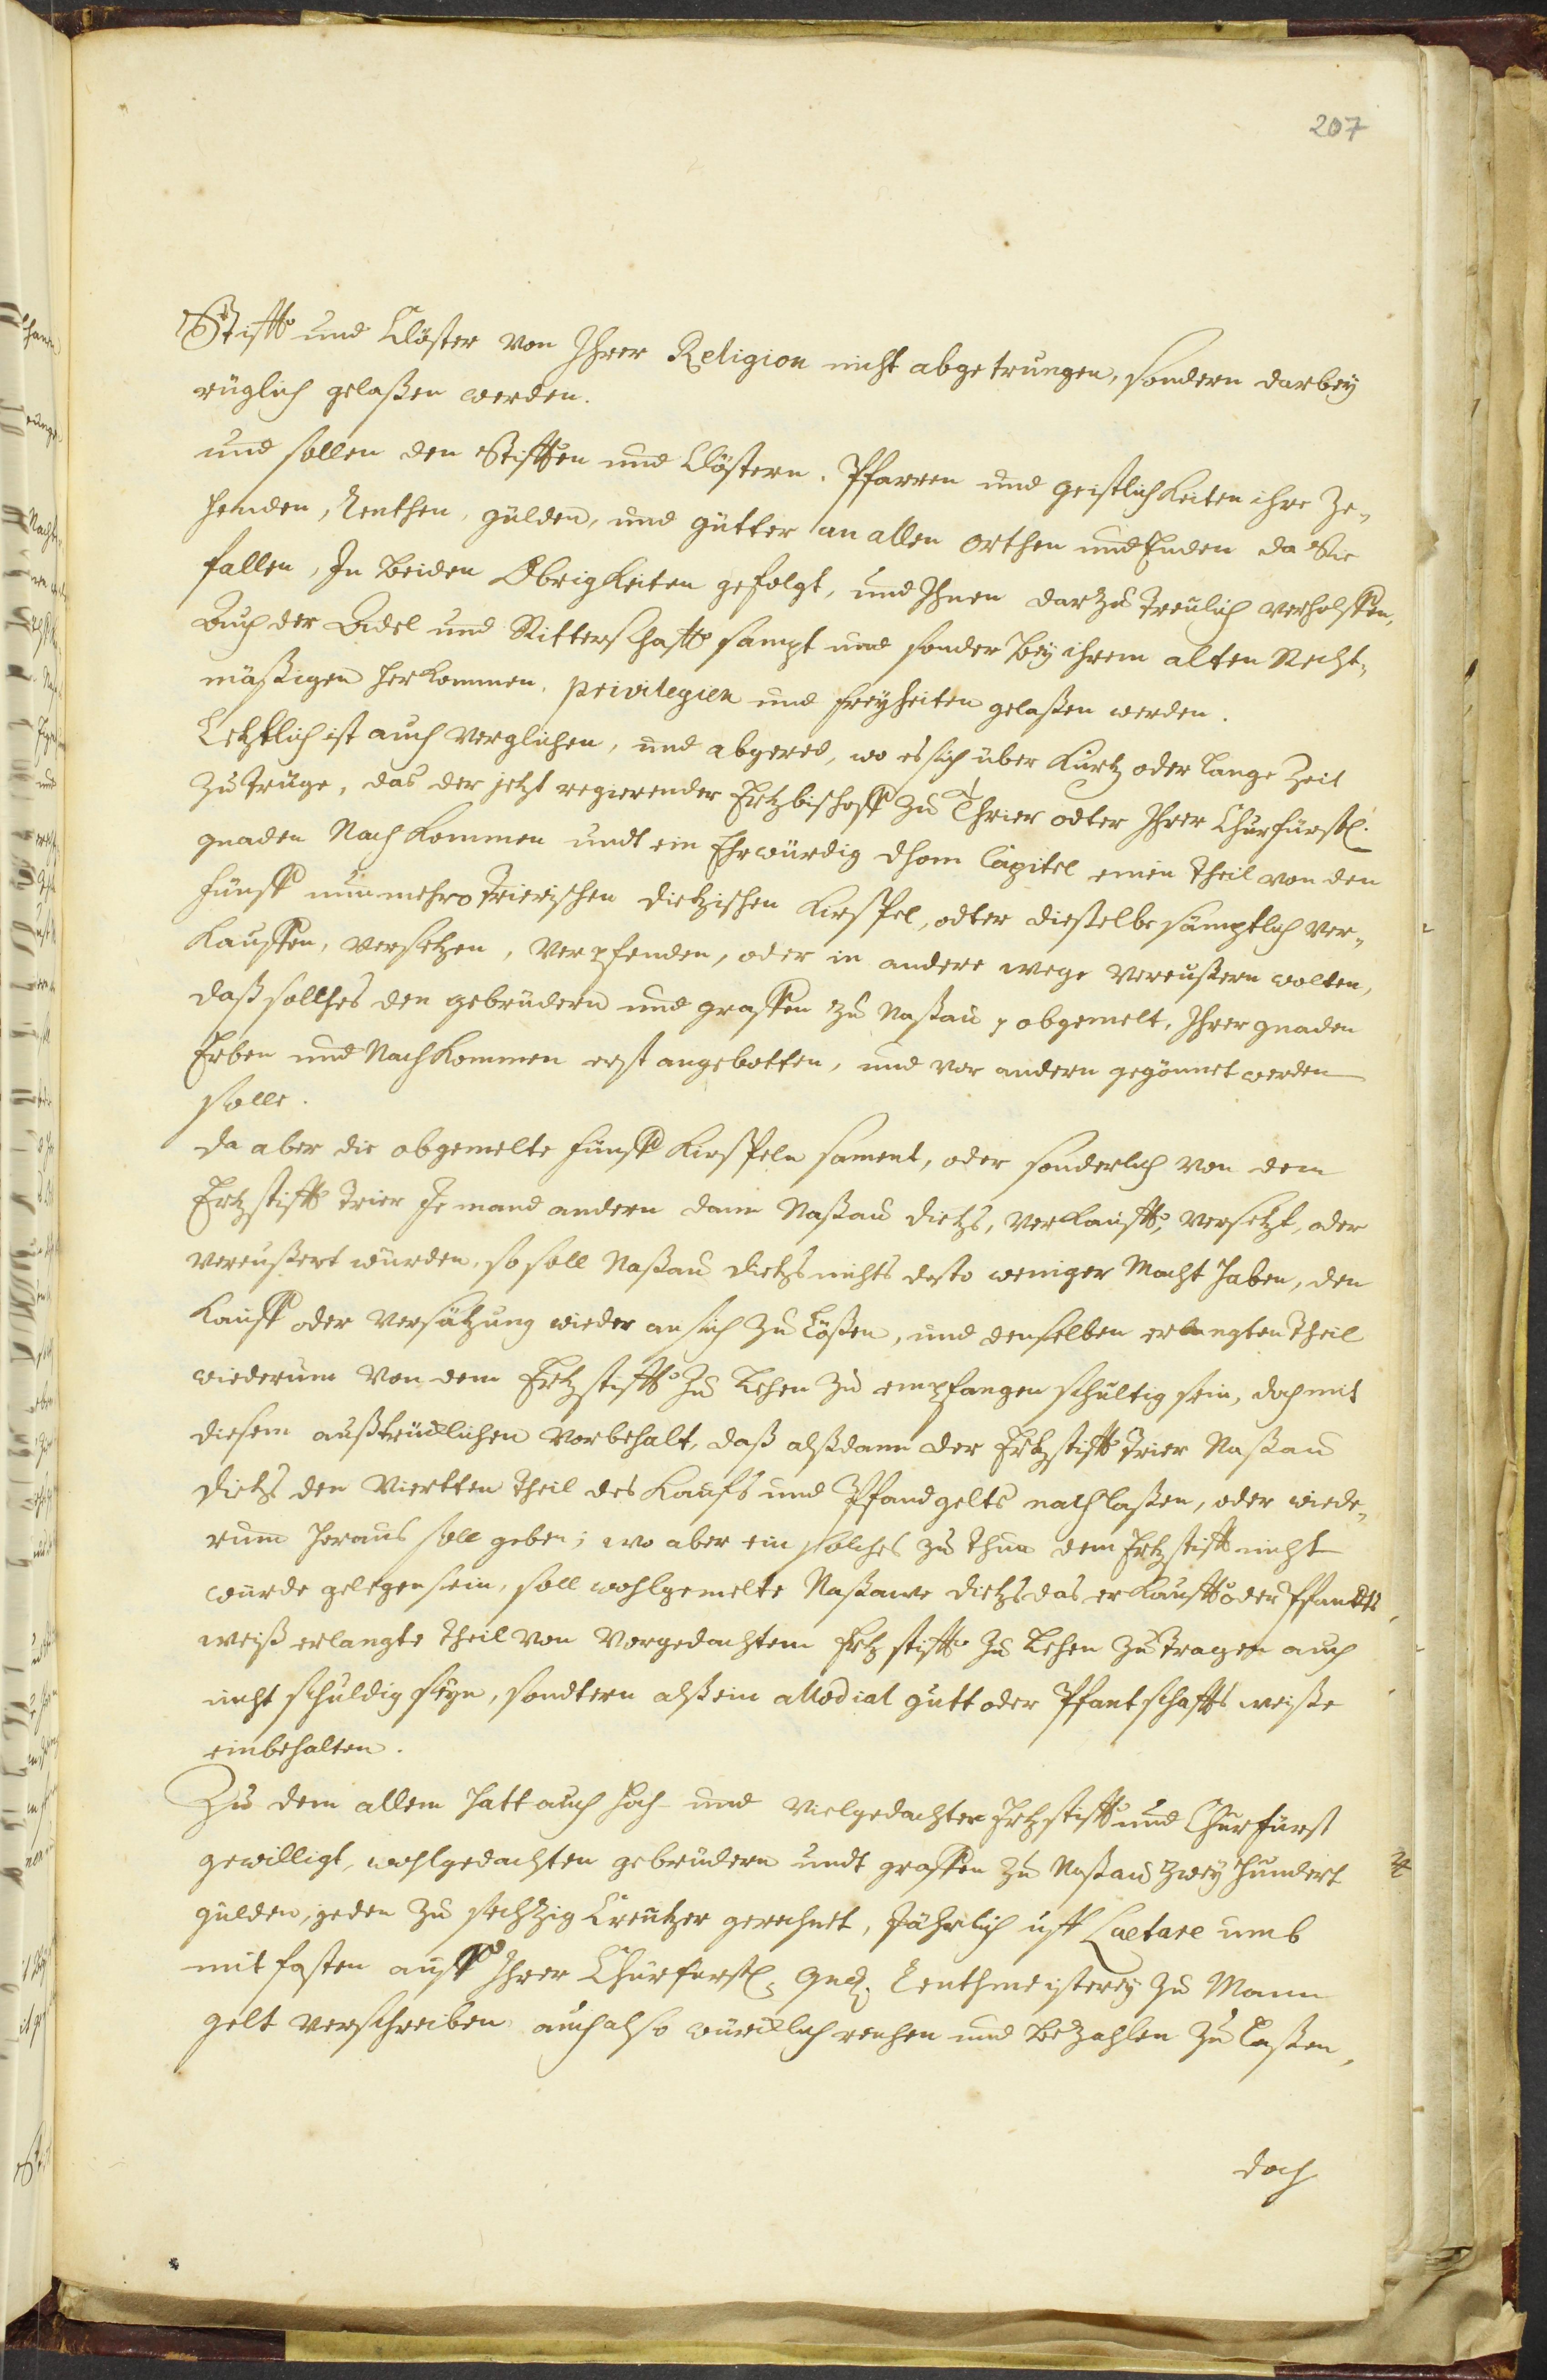 207
Stifft und Clöster von Ihrer Religion nicht abgetrungen, sondern darbey
rüglich gelaßen werden.
und sollen den Stifften und Clöstern, Pfarren und geistlichkeiten ihre Ze-
henden, Renthen, gülden, und gütter an allen orthen und Enden da Sie
fallen, In beiden Obrigkeiten gefolgt, und Ihnen darzu treulich verholffen,
Auch der Adel und Ritterschafft sampt und sonder bey ihrem alten Recht-
mäßigen herkommen, privilegien und freyheiten gelaßen werden.
Letztlich ist auch verglichen, und abgered, wo es sich über kurtz oder lange Zeit
zutrüge, das der jetzt regierender Ertzbischoff zu Thrier odter Ihrer Churfürstl.
gnaden Nachkommen undt ein Ehrwürdig Dhom Capitel einen theil von den
fünff nunmehro Trierischen Dietzischen Kirspel, odter dieselbe sämptlich ver-
kauffen, versetzen, verpfenden, oder in andere wege vereußern wolten,
daß sollches den gebrüdern und graffen zu Naßau obgemelt, Ihrer gnaden
Erben und Nachkommen erst angebotten, und vor andern gegönnet werden
solle.
da aber die obgemelte fünff Kirspeln sament, oder sonderlich von dem
Ertzstifft Trier Jemand andern dann Naßau Dietz, verkaufft, versetzt, oder
vereußert würden, so soll Naßau Dietz nichts desto weniger Macht haben, den
kauff oder versätzung wieder an sich zu lößen, und denselben erlangten theil
wiederum von dem Ertzstifft zu Lehen zu empfangen schultig sein, doch mit
diesem außtrücklichen vorbehalt, daß alßdann der Ertzstifft Trier Naßau
Dietz den viertten theil des kaufs und Pfandgelts nachlaßen, oder wiede-
rum heraus soll geben; wo aber ein solches zu thun dem Ertzstifft nicht
würde gelegen sein, soll wohlgemelte Naßawe Dietz das erkaufft oder Pfandts
weiß erlangte theil von vorgedachtem Ertzstifft zu Lehen zu tragen auch
nicht schuldig seyn, sondtern alß ein allodial gutt oder Pfantschaffts weiße
einbehalten.
Zu dem allem hatt auch hoch- und vielgedachter Ertzstifft und Churfürst
gewilligt, wohlgedachten gebrüdern undt graffen zu Naßau zwey hundert
gülden, jeden zu sechtzig Creutzer gerechnet, Jährlich uff Laetare umb
mitfasten auff Ihrer Churfürstl. Gnd. Renthmeisterey zu Mann
gelt verschreiben auch also würcklich reichen und bezahlen zu laßen,
doch